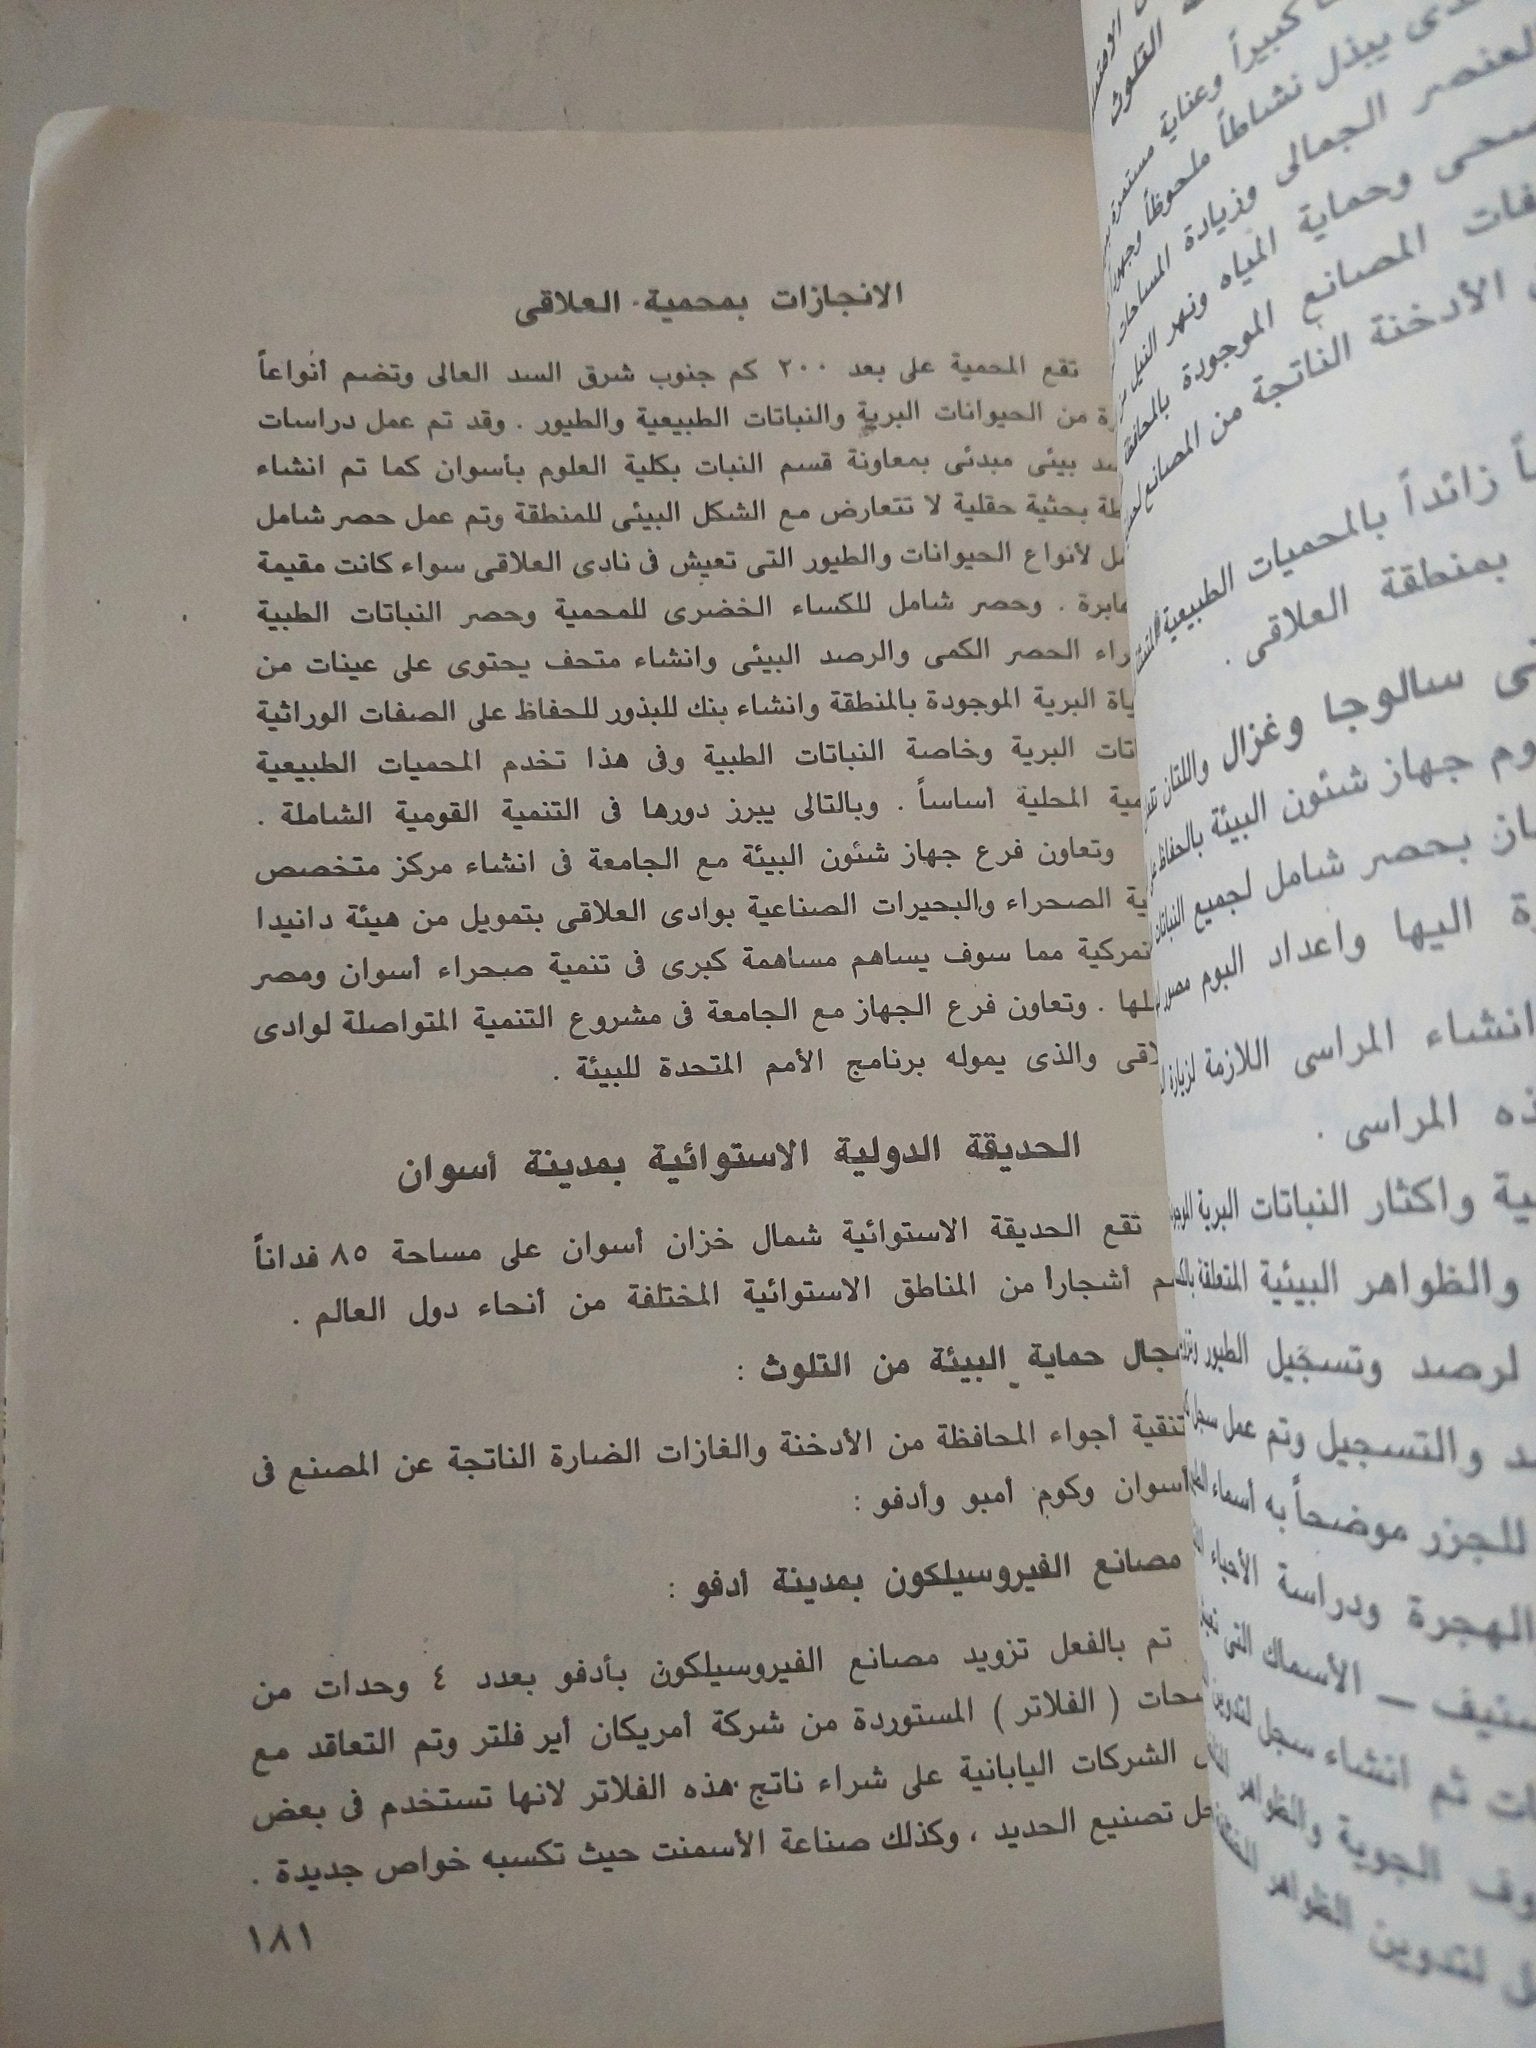 الانجازات بمحمية العلاقى
تقع المحمية على بعد ٢٠٠ كم جنوب شرق السد العالى وتضم أنواعاً
من الحيوانات البرية والنباتات الطبيعية والطيور . وقد تم عمل دراسات
بيئى مبدئى بمعاونة قسم النبات بكلية العلوم بأسوان كما تم انشاء
بحثية حقلية لا تتعارض مع الشكل البيئى للمنطقة وتم عمل حصر شامل
لأنواع الحيوانات والطيور التى تعيش فى نادى العلاقى سواء كانت مقيمة
. وحصر شامل للكساء الخضرى للمحمية وحصر النباتات الطبية
الحصر الكمى والرصد البيئى وانشاء متحف يحتوى على عينات من
البرية الموجودة بالمنطقة وانشاء بنك للبذور للحفاظ على الصفات الوراثية
البرية وخاصة النباتات الطبية وفى هذا تخدم المحميات الطبيعية
المحلية أساساً . وبالتالى يبرز دورها فى التنمية القومية الشاملة .
وتعاون فرع جهاز شئون البيئة مع الجامعة فى انشاء مركز متخصص
الصحراء والبحيرات الصناعية بوادى العلاقى بتمويل من هيئة دانيدا
مما سوف يساهم مساهمة كبرى فى تنمية صحراء أسوان ومصر
. وتعاون فرع الجهاز مع الجامعة فى مشروع التنمية المتواصلة لوادى
والذى يموله برنامج الأمم المتحدة للبيئة .
الحديقة الدولية الاستوائية بمدينة أسوان
تقع الحديقة الاستوائية شمال خزان أسوان على مساحة ٨٥ فداناً
أشجاراً من المناطق الاستوائية المختلفة من أنحاء دول العالم .
مجال حماية البيئة من التلوث :
تنقية أجواء المحافظة من الأدخنة والغازات الضارة الناتجة عن المصنع فى
أسوان وكوم أمبو وأدفو :
مصانع الفيروسيلكون بمدينة أدفو :
تم بالفعل تزويد مصانع الفيروسيلكون بأدفو بعدد ٤ وحدات من
( الفلاتر ) المستوردة من شركة أمريكان أير فلتر وتم التعاقد مع
الشركات اليابانية على شراء ناتج هذه الفلاتر لانها تستخدم فى بعض
تصنيع الحديد ، وكذلك صناعة الأسمنت حيث تكسبه خواص جديدة .
١٨١
التلوث
كبيراً وعناية مستمرة
يبذل نشاطاً ملحوظاً
العنصر الجمالى وزيادة المساحات
وحماية المياه ونهر النيل
المصانع الموجودة
الأدخنة الناتجة من المصانع
زائداً بالمحميات الطبيعية
بمنطقة العلاقى .
سالوجا وغزال واللتان
جهاز شئون البيئة بالحفاظ
بحصر شامل لجميع النباتات
اليها واعداد البوم مصور
انشاء المراسى اللازمة لزيارة
المراسى .
واكثار النباتات البرية
والظواهر البيئية المتعلقة
لرصد وتسجيل الطيور
والتسجيل وتم عمل سجل
للجزر موضحاً به أسماء
الهجرة ودراسة الأحياء
— الأسماك التى
ثم انشاء سجل لتدوين
الجوية والظواهر
لتدوين الظواهر